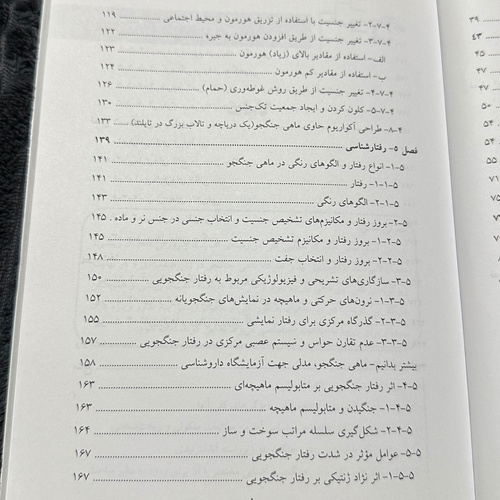 ۴-۷-۲- تغییر جنسیت با استفاده از تزریق هورمون و محیط اجتماعی ۱۱۹
۴-۷-۳- تغییر جنسیت از طریق افزودن هورمون به جیره ۱۲۲
الف- استفاده از مقادیر بالای (زیاد) هورمون ۱۲۳
ب- استفاده از مقادیر کم هورمون ۱۲۴
۴-۷-۴- تغییر جنسیت از طریق روش غوطه‌وری (حمام) ۱۲۶
۴-۷-۵- کلون کردن و ایجاد جمعیت تک‌جنس ۱۳۰
۴-۸- طراحی آکواریوم حاوی ماهی جنگجو(یک دریاچه و تالاب بزرگ در تایلند) ۱۳۳
فصل ۵- رفتارشناسی ۱۳۹
۵-۱- انواع رفتار و الگوهای رنگی در ماهی جنگجو ۱۴۱
۵-۱-۱- رفتار ۱۴۱
۵-۱-۲- الگوهای رنگی ۱۴۳
۵-۲- بروز رفتار و مکانیزم‌های تشخیص جنسیت و انتخاب جنسی در جنس نر و ماده . ۱۴۵
۵-۲-۱- بروز رفتار و مکانیزم تشخیص جنسیت ۱۴۵
۵-۲-۲- بروز رفتار و انتخاب جفت ۱۴۸
۵-۳- سازگاری‌های تشریحی و فیزیولوژیکی مربوط به رفتار جنگجویی ۱۵۰
۵-۳-۱- نرون‌های حرکتی و ماهیچه در نمایش‌های جنگجویانه ۱۵۲
۵-۳-۲- گذرگاه مرکزی برای رفتار نمایشی ۱۵۵
۵-۳-۳- عدم تقارن حواس و سیستم عصبی مرکزی در رفتار جنگجویی ۱۵۷
بیشتر بدانیم- ماهی جنگجو، مدلی جهت آزمایشگاه داروشناسی ۱۵۸
۵-۴- اثر رفتار جنگجویی بر متابولیسم ماهیچه‌ای ۱۶۳
۵-۴-۱- جنگیدن و متابولیسم ماهیچه ۱۶۳
۵-۴-۲- شکل‌گیری سلسله مراتب سوخت و ساز ۱۶۴
۵-۵- عوامل مؤثر در شدت رفتار جنگجویی ۱۶۷
۵-۵-۱- اثر نژاد ژنتیکی بر رفتار جنگجویی ۱۶۷
۳۹
۴۳
۴۵
۴۷
۴۷
۵۰
۵۴
۵۴
۵۵
۷۱